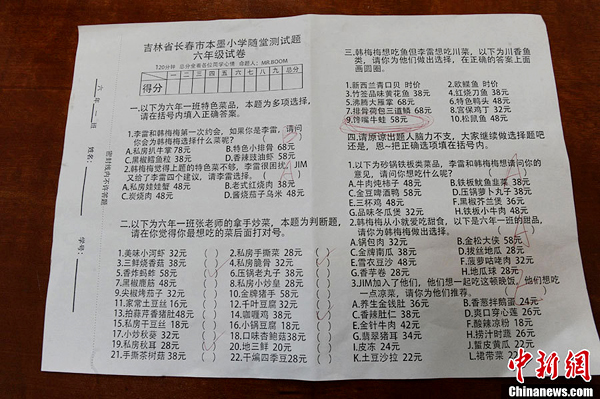 吉林省长春市本墨小学随堂测试题
六年级试卷
120分钟 总分全看各位同学心情 命题人:MR.BOOM
一 二 三 四 五 六 七 八 九 总分
得分
一.以下为六年一班特色菜品,本题为多项选择,
请在括号内填入正确答案。
1.李雷和韩梅梅第一次约会,如果你是李雷,请问
你会为韩梅梅选择什么菜呢?
A.私房扒牛掌 78元
B.特色小排骨 68元
C.黑椒鳕鱼粒 38元
D.香辣豉油虾 58元
2.韩梅梅觉得上题的特色菜不够,李雷很困扰,JIM
又给了李雷四个建议,请李雷选择。
A.私房娃娃蟹 48元
B.老式红烧肉 38元
C.炭烧肉 48元
D.酱烧茄子乌米 48元
二.以下为六年一班张老师的拿手炒菜,本题为判断题,
请在你觉得你最想吃的菜后面打对号。
1.美味小河虾 32元 ( )
2.私房手撕菜 28元 ( )
3.三鲜烧香菇 38元 ( )
4.私房脆骨 32元 ( )
5.香炸蚂蚱 58元 ( )
6.压锅老丸子 38元 ( )
7.黑椒鹿筋 48元 ( )
8.私房小炒皇 28元 ( )
9.尖椒烤茄子 32元 ( )
10.金牌猪手 58元 ( )
11.家常土豆丝 16元 ( )
12.千叶豆腐 32元 ( )
13.拾蒜芹香猪肚48元 ( )
14.咖喱鸡 38元 ( )
15.私房干豆丝 18元 ( )
16.小锅豆腐 18元 ( )
17.小炒秋葵 32元 ( )
18.口味杏鲍菇38元 ( )
19.私房秋耳 28元 ( )
20.地三鲜 20元 ( )
21.手撕茶树菇 38元 ( )
22.干煸四季豆28元 ( )
三.韩梅梅想吃鱼但李雷想吃川菜,以下为川香鱼
类,请你为他们做出选择,在正确的答案上面
画圆圈。
1.新西兰青口贝 时价
2.欧鳗鱼 时价
3.竹签品味黄花鱼 38元
4.红烧刀鱼 38元
5.沸腾大雁掌 68元
6.特色鸭头 48元
7.排骨荷包三道鳞 68元
8.宫保鸡丁 32元
9.馋嘴牛蛙 58元
10.松鼠鱼 48元
四.请原谅出题人脑力不支,大家继续做选择题吧
还是,恩~把正确选项填在括号内。
1.以下为砂锅铁板类菜品,李雷和韩梅梅想请问你的
意见,请问你想吃什么呢?
A.牛肉炖柿子 48元
B.铁板鱿鱼韭菜 38元
C.金豆啤酒鸭 58元
D.压锅萝卜丸子 38元
E.三杯鸡 48元
F.黑椒芥兰煲 36元
G.品味冬瓜煲 32元
H.铁板小牛肉 48元
2.韩梅梅从小就爱吃甜食,以下是六年一班的甜品,
请你为她做出选择。
A.锅包肉 32元
B.金松大侠 58元
C.金牌南瓜 38元
D.拔丝地瓜 28元
E.雪衣豆沙 48元
F.菠萝咕咾肉 32元
G.香芋卷 28元
H.地瓜球 28元
3.JIM加入了他们,他们想一起吃这顿晚饭,他们想吃
一点凉菜,请你为他们推荐。
A.养生金钱肚 36元
B.香葱拌鹅蛋 24元
C.香辣肚仁 38元
D.爽口穿心莲 26元
E.金针牛肉 42元
F.酸辣凉粉 18元
G.翡翠猪耳 34元
H.捞汁时蔬 26元
I.皮冻 24元
J.蜇皮黄瓜 22元
K.土豆沙拉 22元
L.裙带菜 22元
六年一班
姓名:
学号:
密封线内不许答题
中新网
www.chinanews.com